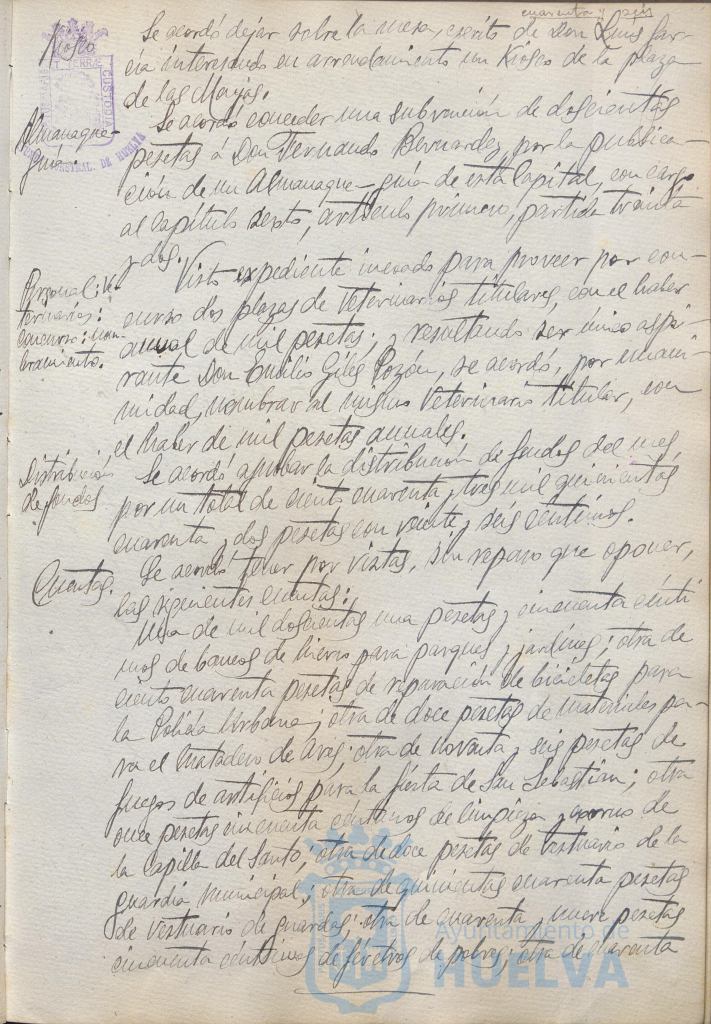 cuarenta y seis
Kiosco
Se acordó dejar sobre la mesa, escrito de Don Luis Gar-
cía interesando en arrendamiento un Kiosco de la plaza
de las Monjas.
Almanaque-
guía.
Se acordó conceder una subvención de doscientas
pesetas á Don Fernando Bernardez, por la publica-
ción de un Almanaque-guía de esta Capital, con cargo
al Capítulo sexto, artículo primero, partida treinta
y dos.
Personal: Ve-
terinarios:
Concurso: nom-
bramiento.
Visto expediente incoado para proveer por con-
curso dos plazas de Veterinarios titulares, con el haber
anual de mil pesetas; y resultando ser único aspi-
rante Don Emilio Giles Pozón, se acordó, por unani-
midad, nombrar al mismo Veterinario titular, con
el haber de mil pesetas anuales.
Distribución
de fondos
Se acordó aprobar la distribución de fondos del mes
por un total de ciento cuarenta y tres mil quinientas
cuarenta y dos pesetas con veinte y seis céntimos.
Cuentas.
Se acordó tener por vistas, sin reparo que oponer,
las siguientes cuentas:
Una de mil doscientas una pesetas y cincuenta cénti
mos de bancos de hierro para parques y jardines; otra de
ciento cuarenta pesetas de reparación de bicicletas para
la Policía Urbana; otra de doce pesetas de materiales pa-
ra el Matadero de Aves; otra de noventa y seis pesetas de
fuegos de artificios para la fiesta de San Sebastian; otra
once pesetas cincuenta céntimos de limpieza y exorno de
la Capilla del Santo; otra de doce pesetas de vestuario de la
guardia municipal; otra de quinientas cuarenta pesetas
de vestuario de guardas; otra de cuarenta y nueve pesetas
cincuenta céntimos de féretros de pobres; otra de cuarenta
Ayuntamiento de
HUELVA